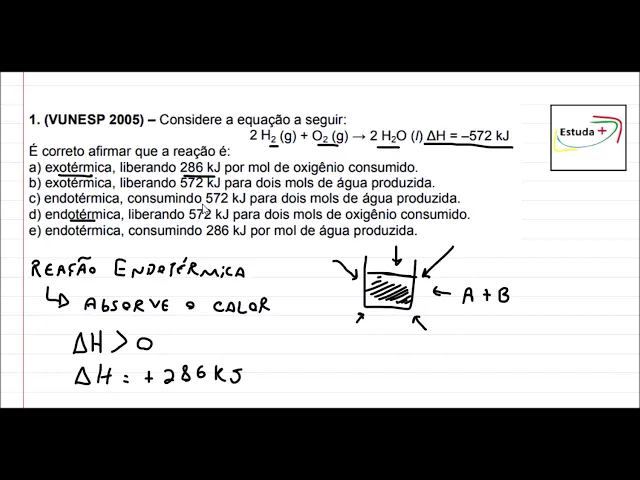 1. (VUNESP 2005) – Considere a equação a seguir:
2 H2 (g) + O2 (g) → 2 H2O (l) ΔH = –572 kJ
É correto afirmar que a reação é:
a) exotérmica, liberando 286 kJ por mol de oxigênio consumido.
b) exotérmica, liberando 572 kJ para dois mols de água produzida.
c) endotérmica, consumindo 572 kJ para dois mols de água produzida.
d) endotérmica, liberando 572 kJ para dois mols de oxigênio consumido.
e) endotérmica, consumindo 286 kJ por mol de água produzida.
Estuda +
REAÇÃO ENDOTÉRMICA
↳ ABSORVE O CALOR
A + B
ΔH > 0
ΔH = + 286 KJ